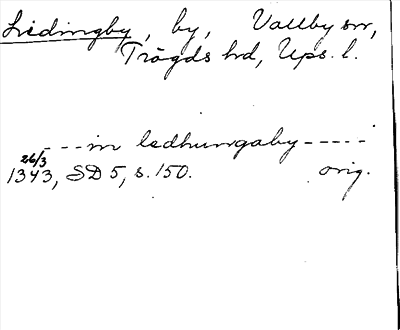 Lidingby, by, Vallby sn,
Trögds hd, Ups. l.
---in ledhungaby-----
26/3
1343, SD 5, s. 150. orig.